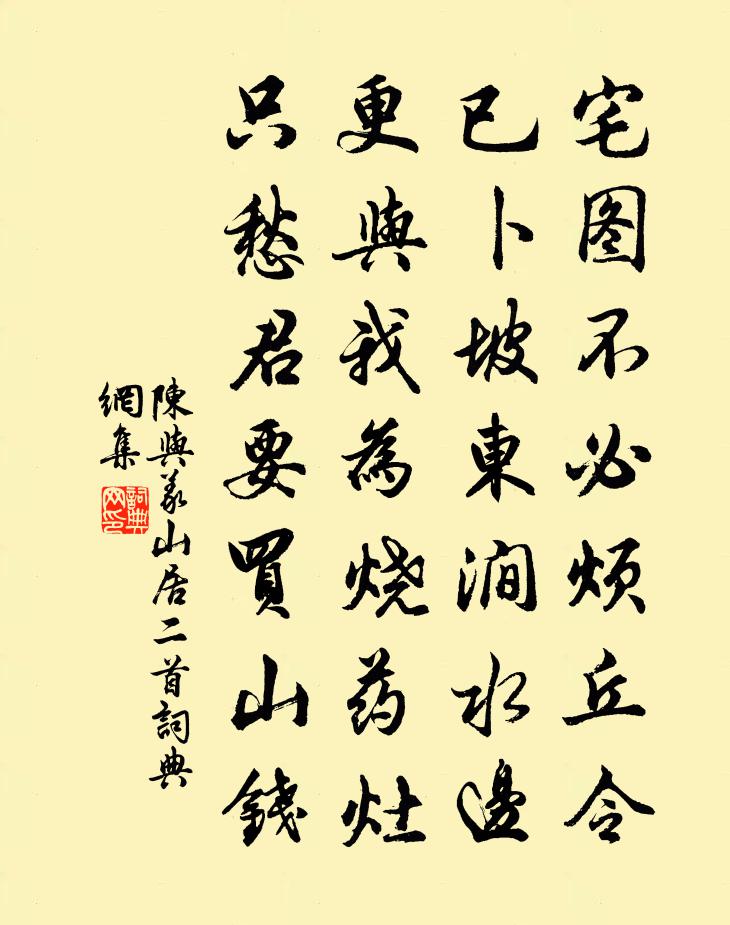 宅图不必烦丘令
已卜坡東涧水邊
更與我為烧药灶
只愁君要買山錢
陳與義山居二首詞典
網集
詞典
网印